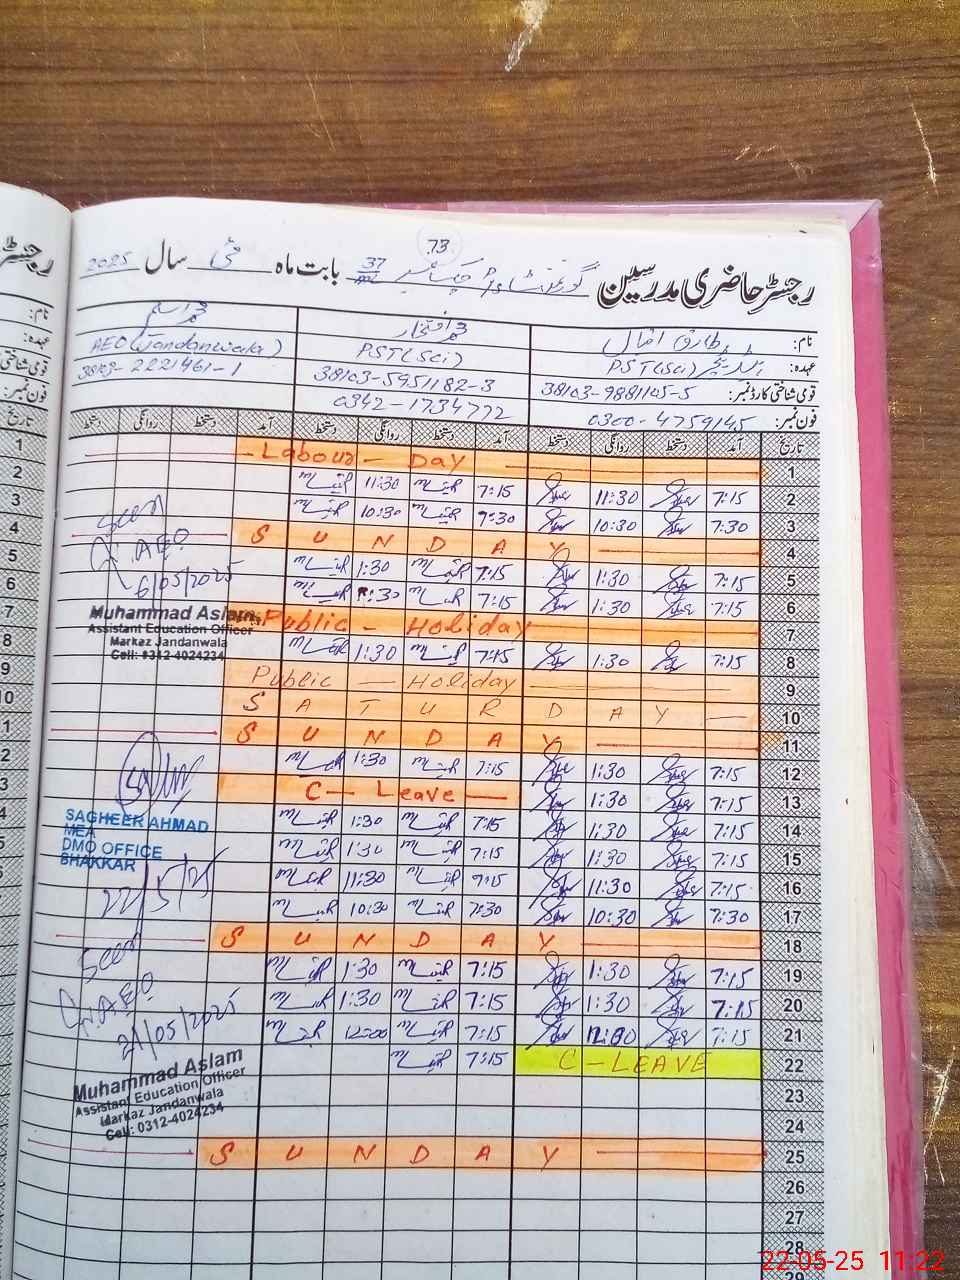 73
رجسٹر حاضری مدرسین گورنمنٹ بابت ماہ مئی سال 2025
37
نام: طارق اقبال محمد افتخار محمد اسلم
عہدہ: PST(Sci) PST(Sci) AEO (Jandanwala)
قومی شناختی کارڈ نمبر: 38103-9881105-5 38103-5951182-3 38103-2221461-1
فون نمبر: 0300-4759145 0342-1734772
تاریخ آمد دستخط روانگی دستخط آمد دستخط روانگی دستخط آمد دستخط روانگی دستخط
1 Labour - Day
2 7:15 11:30 7:15 11:30
3 7:30 10:30 7:30 10:30
4 S U N D A Y
5 7:15 1:30 7:15 1:30
6 7:15 1:30 7:15 1:30
7 Public - Holiday
8 7:15 1:30 7:15 1:30
9 Public - Holiday
10 S A T U R D A Y
11 S U N D A Y
12 7:15 1:30 7:15 1:30
13 7:15 1:30 C - Leave
14 7:15 1:30 7:15 1:30
15 7:15 1:30 7:15 1:30
16 7:15 11:30 11:30
17 7:30 10:30 7:30 10:30
18 S U N D A Y
19 7:15 1:30 7:15 1:30
20 7:15 1:30 7:15 1:30
21 7:15 12:00 7:15 12:00
22 C - LEAVE 7:15
23
24
25 S U N D A Y
26
27
28
29
Seen
AEO
6/05/2025
Muhammad Aslam
Assistant Education Officer
Markaz Jandanwala
Cell: 0312-4024234
SAGHEER AHMAD
MEA
DMO OFFICE
BHAKKAR
22/5/25
Seen
AEO
21/05/2025
Muhammad Aslam
Assistant Education Officer
Markaz Jandanwala
Cell: 0312-4024234
رجسٹر
نام:
عہدہ:
فون نمبر:
تاریخ
1
2
3
4
5
6
7
8
9
10
22-05-25 11:22